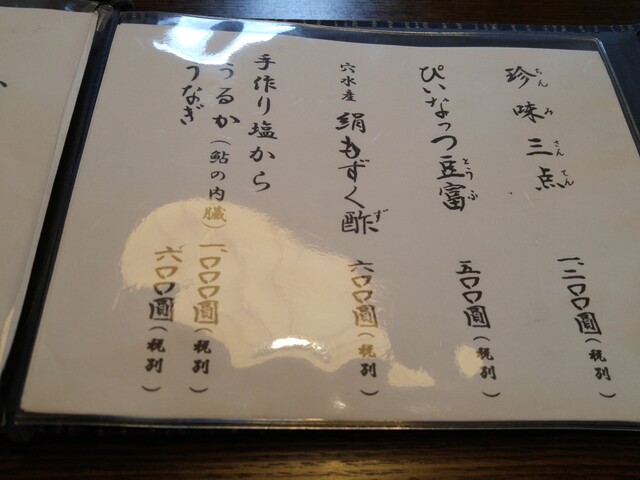 珍味三点 一、二〇〇圓（税別）
ちん み さん てん
ぴいなっつ豆富 五〇〇圓（税別）
とう ふ
穴水産 絹もずく酢 六〇〇圓（税別）
ず
手作り塩から
うるか（鮎の内臓） 一、〇〇〇圓（税別）
うなぎ 六〇〇圓（税別）